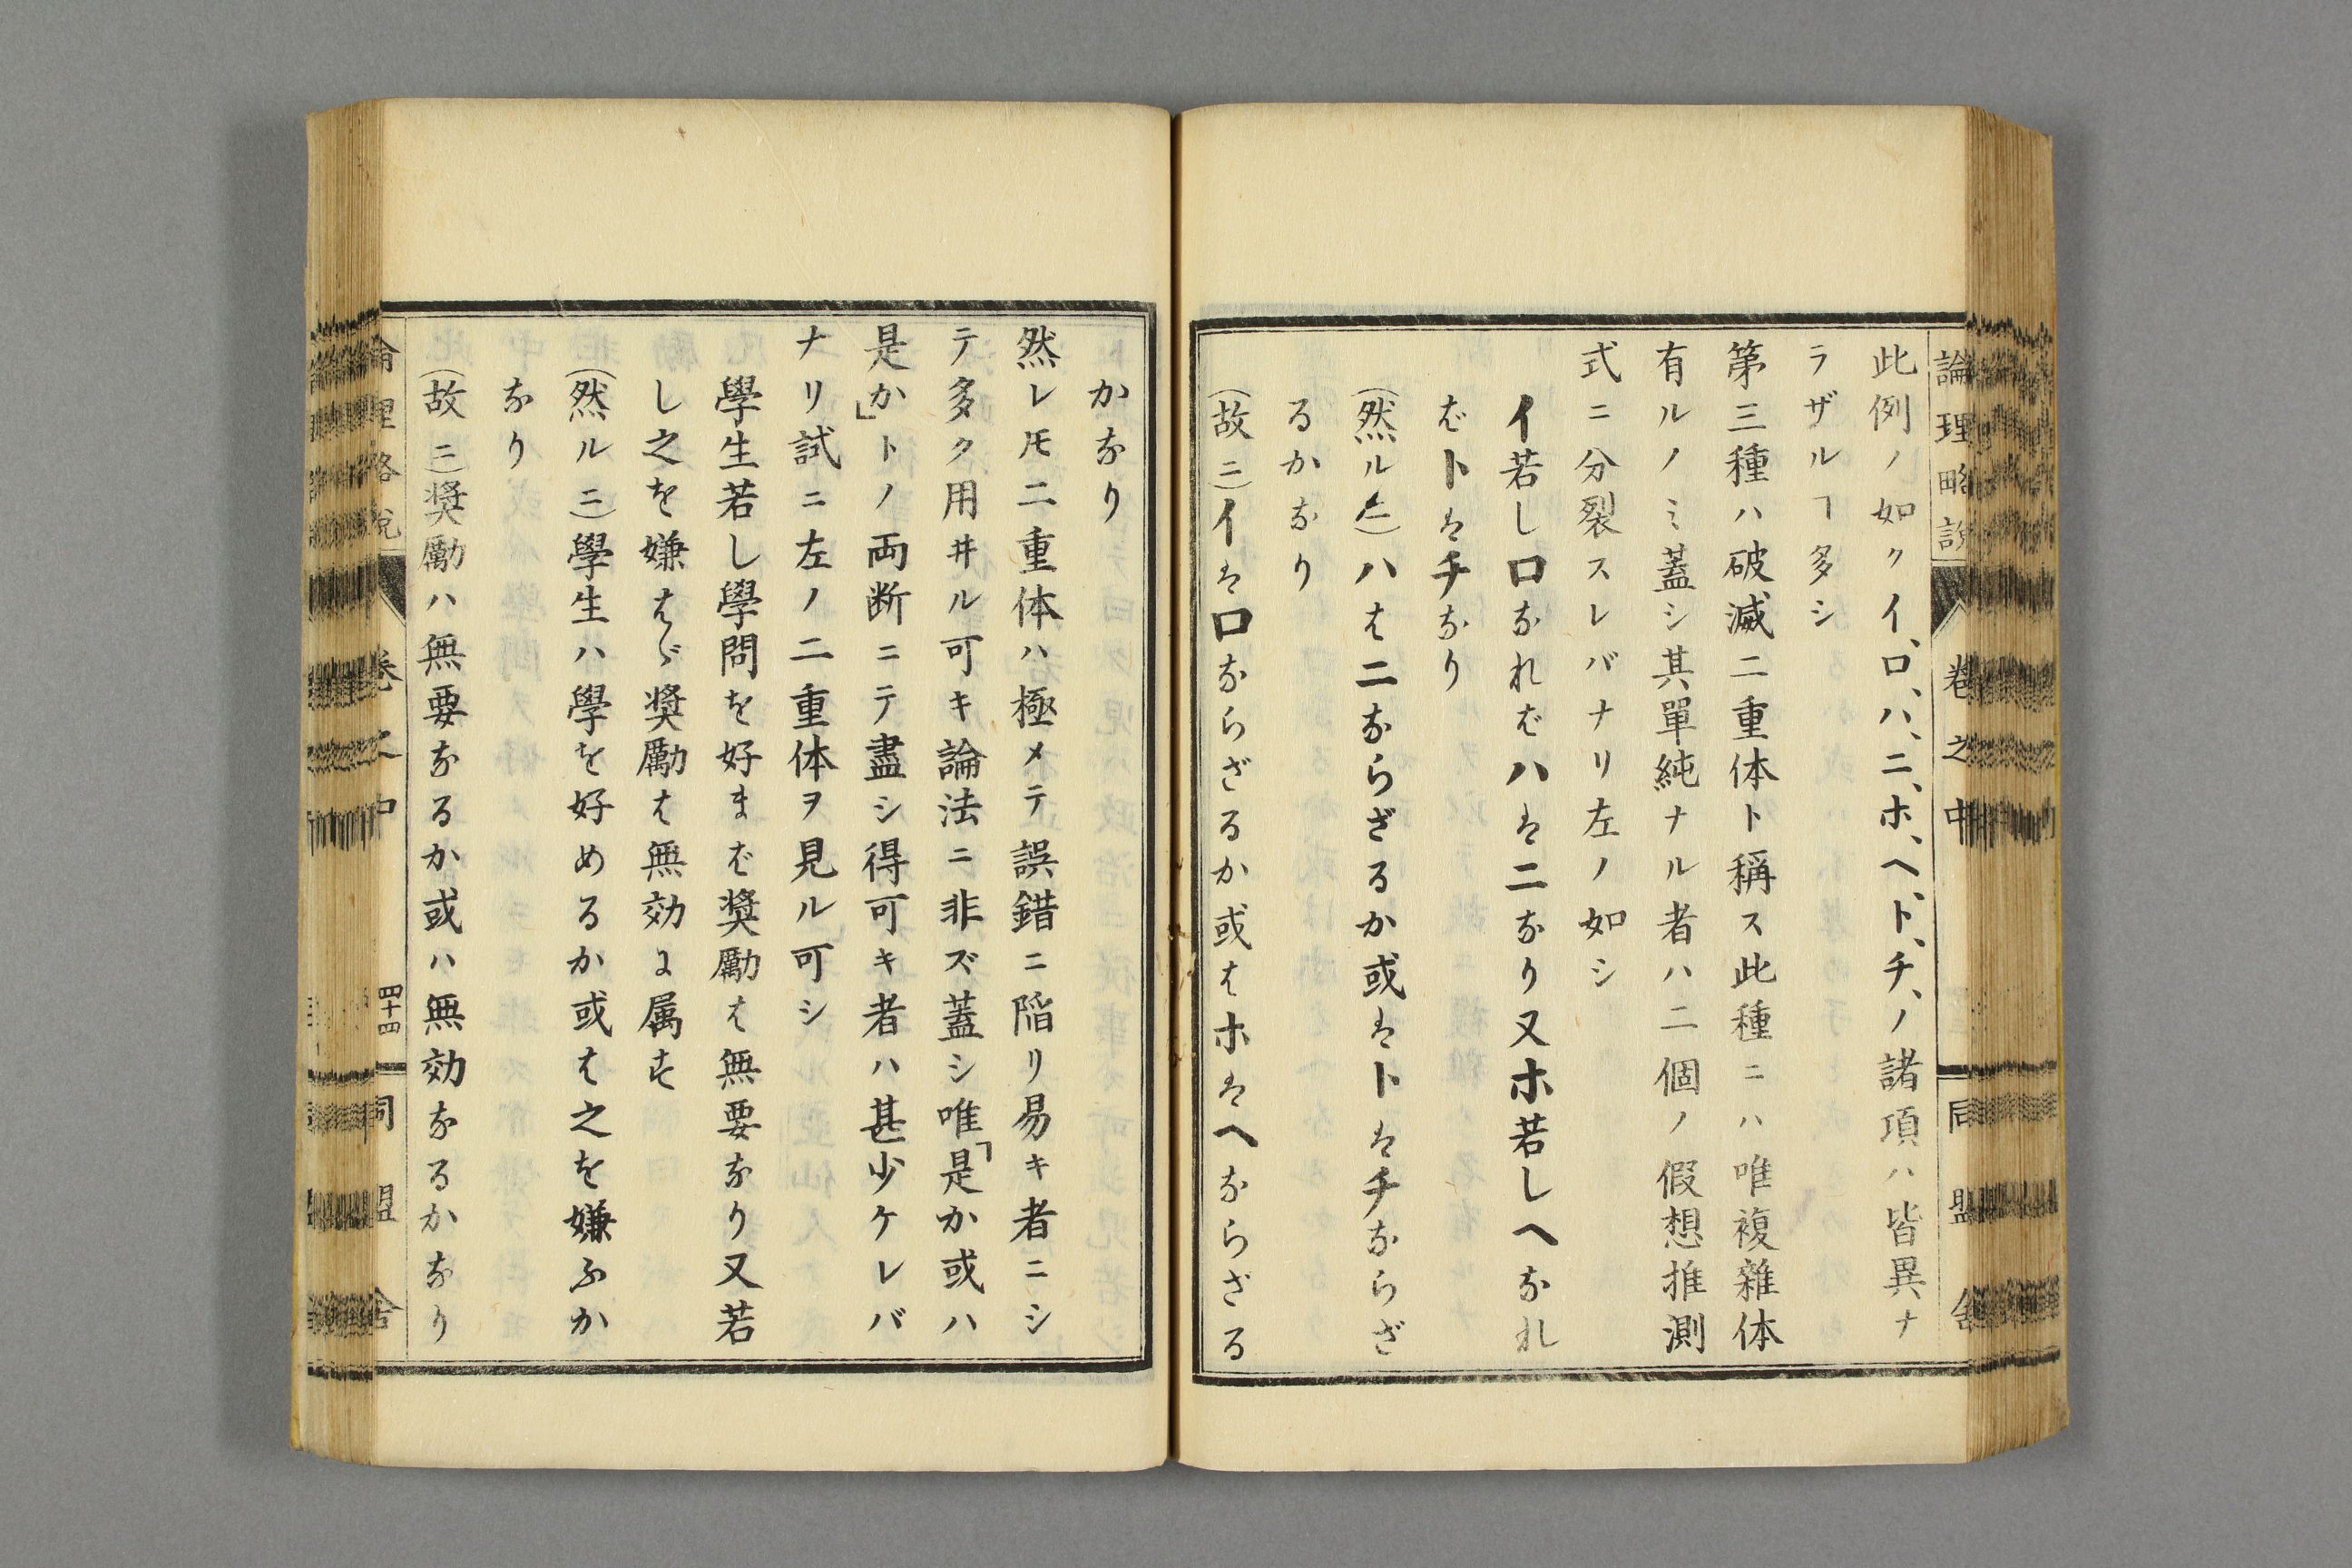 論理略說 卷之中 同盟舍
此例ノ如クイ、ロ、ハ、ニ、ホ、ヘ、ト、チ、ノ諸項ハ皆異ナ
ラザルヿ多シ
第三種ハ破滅二重体ト稱ス此種ニハ唯複雜体
有ルノミ蓋シ其單純ナル者ハ二個ノ假想推測
式ニ分裂スレバナリ左ノ如シ
イ若しロなればハはニなり又ホ若しヘなれ
ばトはチなり
(然ルニ)ハはニならざるか或はトはチならざ
るかなり
(故ニ)イはロならざるか或はホはヘならざる
かなり
然レ𪜈二重体ハ極メテ誤錯ニ陷リ易キ者ニシ
テ多ク用井ル可キ論法ニ非ズ蓋シ唯「是か或ハ
是か」トノ両断ニテ盡シ得可キ者ハ甚少ケレバ
ナリ試ニ左ノ二重体ヲ見ル可シ
學生若し學問を好まば奬勵は無要なり又若
し之を嫌はゞ奬勵は無効に属す
(然ルニ)學生ハ學を好めるか或は之を嫌ふか
なり
(故ニ)奬勵ハ無要なるか或ハ無効なるかなり
論理略說 卷之中 四十四 同盟舍